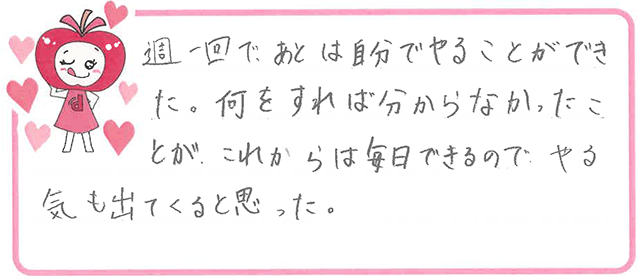 週一回で、あとは自分でやることができ
た。何をすれば分からなかったこ
とが、これからは毎日できるので、やる
気も出てくると思った。